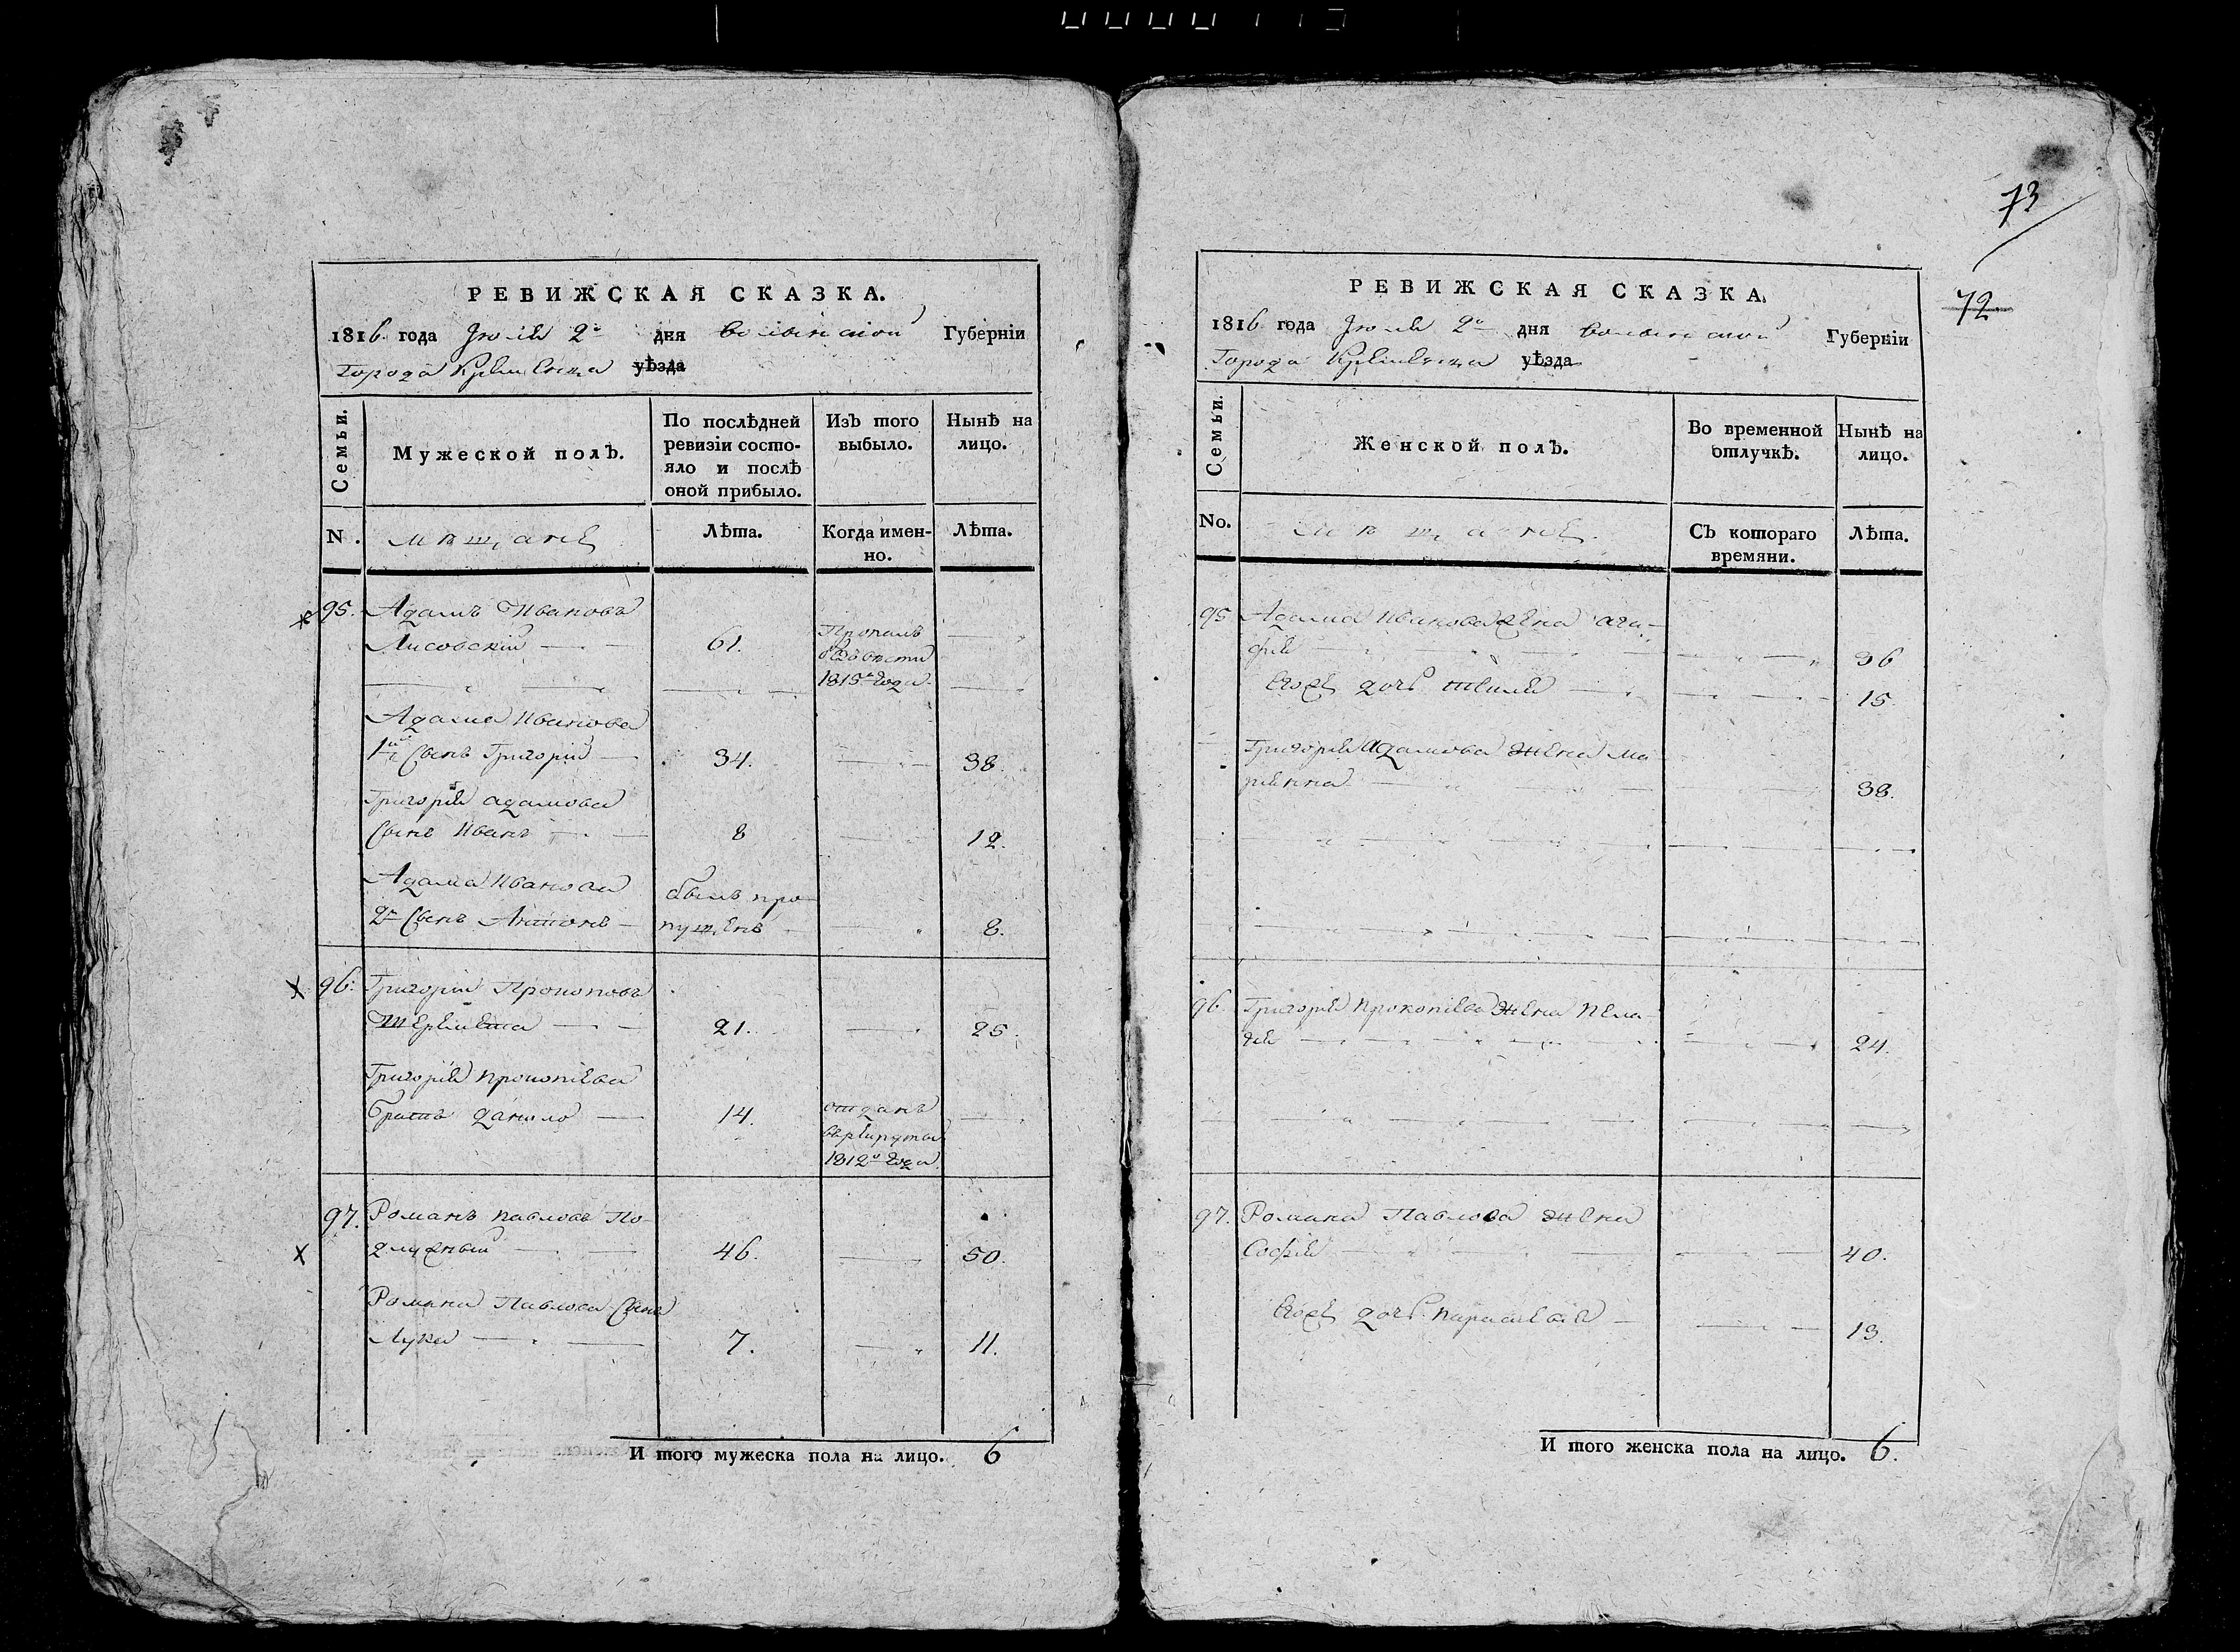 РЕВИЖСКАЯ СКАЗКА.
1816 года Июля 2го дня волынской Губернiи
Города Кременца уѣзда
Семьи.
Мужеской полъ.
По послѣдней ревизiи состояло и послѣ оной прибыло.
Изъ того выбыло.
Нынѣ на лицо.
N.
мѣщане
Лѣта.
Когда именно.
Лѣта.
95. Адамъ Ивановъ
Лисовскiй 61. Пропалъ безъ вѣсти 1815го года
Адама Иванова
1й Сынъ Григорiй 34. 38.
Григорiя адамова
Сынъ Иванъ 8 12.
Адама Иванова былъ про-
2й Сынъ Антонъ пущенъ 8.
96. Григорiй Прокоповъ
21. 25.
Григорiя прокопiева
братъ данило 14. отданъ врекруты 1812го года
97. Романъ павловъ По-
длужный 46. 50.
Романа Павлова Сынъ
Лука 7. 11.
И того мужеска пола на лицо. 6
73
72
РЕВИЖСКАЯ СКАЗКА.
1816 года Июля 2го дня волынской Губернiи
Города Кременца уѣзда
Семьи.
Женской полъ.
Во временной отлучкѣ.
Нынѣ на лицо.
No.
мѣщане.
Съ котораго времяни.
Лѣта.
95 Адама Иванова жена ага-
фiя 36
Егоже дочь 15.
Григорiя адамова жена ма
рiянна 38.
96. Григорiя прокопiева жена пела-
гiя 24.
97. Романа Павлова жена
Софiя 40.
Егоже дочь параскевiя 13.
И того женска пола на лицо. 6.